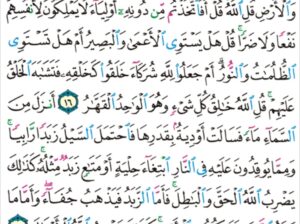 وَٱلْأَرْضِ قُلِ ٱللَّهُ قُلْ أَفَٱتَّخَذْتُم مِّن دُونِهِۦٓ أَوْلِيَآءَ لَا يَمْلِكُونَ لِأَنفُسِهِمْ
نَفْعًا وَلَا ضَرًّا قُلْ هَلْ يَسْتَوِى ٱلْأَعْمَىٰ وَٱلْبَصِيرُ أَمْ هَلْ تَسْتَوِى
ٱلظُّلُمَٰتُ وَٱلنُّورُ أَمْ جَعَلُوا۟ لِلَّهِ شُرَكَآءَ خَلَقُوا۟ كَخَلْقِهِۦ فَتَشَٰبَهَ ٱلْخَلْقُ
عَلَيْهِمْ قُلِ ٱللَّهُ خَٰلِقُ كُلِّ شَىْءٍ وَهُوَ ٱلْوَٰحِدُ ٱلْقَهَّٰرُ ١٦ أَنزَلَ مِنَ
ٱلسَّمَآءِ مَآءً فَسَالَتْ أَوْدِيَةٌۢ بِقَدَرِهَا فَٱحْتَمَلَ ٱلسَّيْلُ زَبَدًا رَّابِيًا
وَمِمَّا يُوقِدُونَ عَلَيْهِ فِى ٱلنَّارِ ٱبْتِغَآءَ حِلْيَةٍ أَوْ مَتَٰعٍ زَبَدٌ مِّثْلُهُۥ كَذَٰلِكَ
يَضْرِبُ ٱللَّهُ ٱلْحَقَّ وَٱلْبَٰطِلَ فَأَمَّا ٱلزَّبَدُ فَيَذْهَبُ جُفَآءً وَأَمَّا مَا